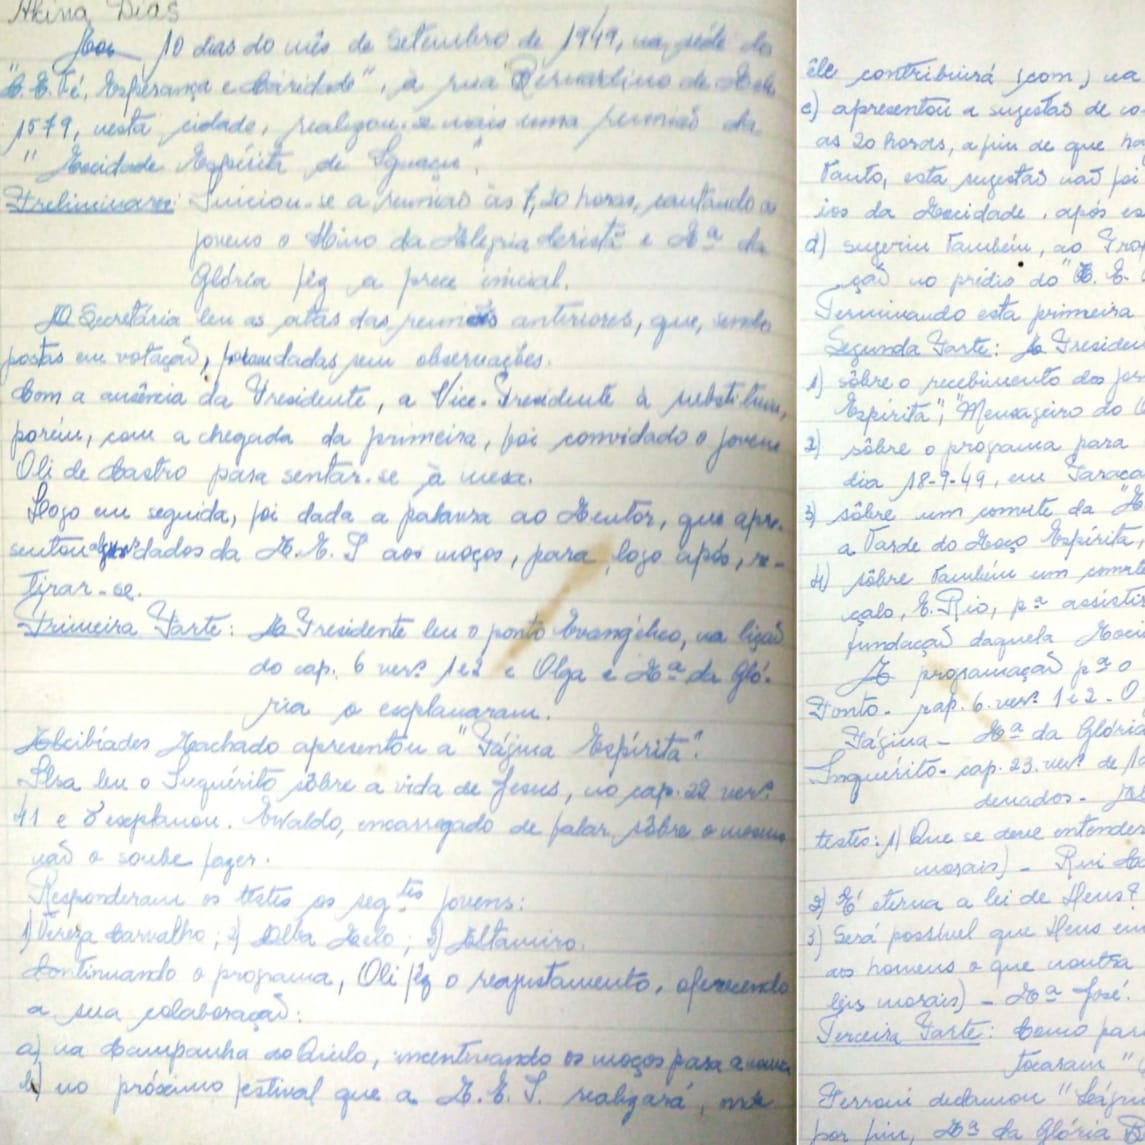 Akina Dias
Aos 10 dias do mês de Setembro de 1949, na séde do
"C. E. Fé, Esperança e Caridade", à rua Bernardino de Melo
1579, nesta cidade, realizou-se mais uma reunião da
"Mocidade Espírita de Iguaçu".
Preliminares: Iniciou-se a reunião às 7,20 horas, cantando os
jovens o Hino da Alegria Cristã e Mª da
Glória fêz a prece inicial.
A Secretária leu as atas das reuniões anteriores, que, sendo
postas em votação, foram dadas sem observações.
Com a ausência da Presidente, a Vice-Presidente à substituiu,
porém, com a chegada da primeira, foi convidado o jovem
Oli de Castro para sentar-se à mesa.
Logo em seguida, foi dada a palavra ao Mentor, que apre-
sentou dados da M. E. I aos moços, para, logo após, re-
tirar-se.
Primeira Parte: A Presidente leu o ponto Evangélico, na lição
do cap. 6 vers. 1 e 2 e Olga e Mª da Gló-
ria o explanaram.
Alcibíades Machado apresentou a "Página Espírita".
Elsa leu o Inquérito sôbre a vida de Jesus, no cap. 22 vers.
41 e explanou. Evaldo, encarregado de falar sôbre o mesmo
não o soube fazer.
Responderam os testes os segtes jovens:
1) Tereza Carvalho; 2) Alba Melo; 3) Altamiro.
Continuando o programa, Oli fêz o reajustamento, oferecendo
a sua colaboração:
a) na Campanha do Quilo, incentivando os moços para a
b) no próximo festival que a M. E. I. realizará,
êle contribuirá (com) na
c) apresentou a sugestão de
as 20 horas, a fim de que
Tanto, esta sugestão não foi
ios da Mocidade, após
d) sugeriu também, ao
ção no prédio do "C. E.
Terminando esta primeira
Segunda Parte: A Presiden
1) sôbre o recebimento dos
Espírita", "Mensageiro do
2) sôbre o programa para
dia 18-9-49, em
3) sôbre um convite da
a Tarde do Moço Espírita,
4) sôbre também um convite
çalo, E. Rio, pª assistir
fundação daquela Moci
A programação pª o
Ponto - cap. 6. vers. 1 e 2 - O
Página - Mª da Glória
Inquérito - cap. 23. vers. de
denados -
testes: 1) Que se deve entender
morais) - Rui
2) É eterna a lei de Deus?
3) Será possível que Deus em
aos homens o que noutra
leis morais) - Mª José.
Terceira Parte: Como par
tocaram "
Ferroni declamou "
por fim, Mª da Glória